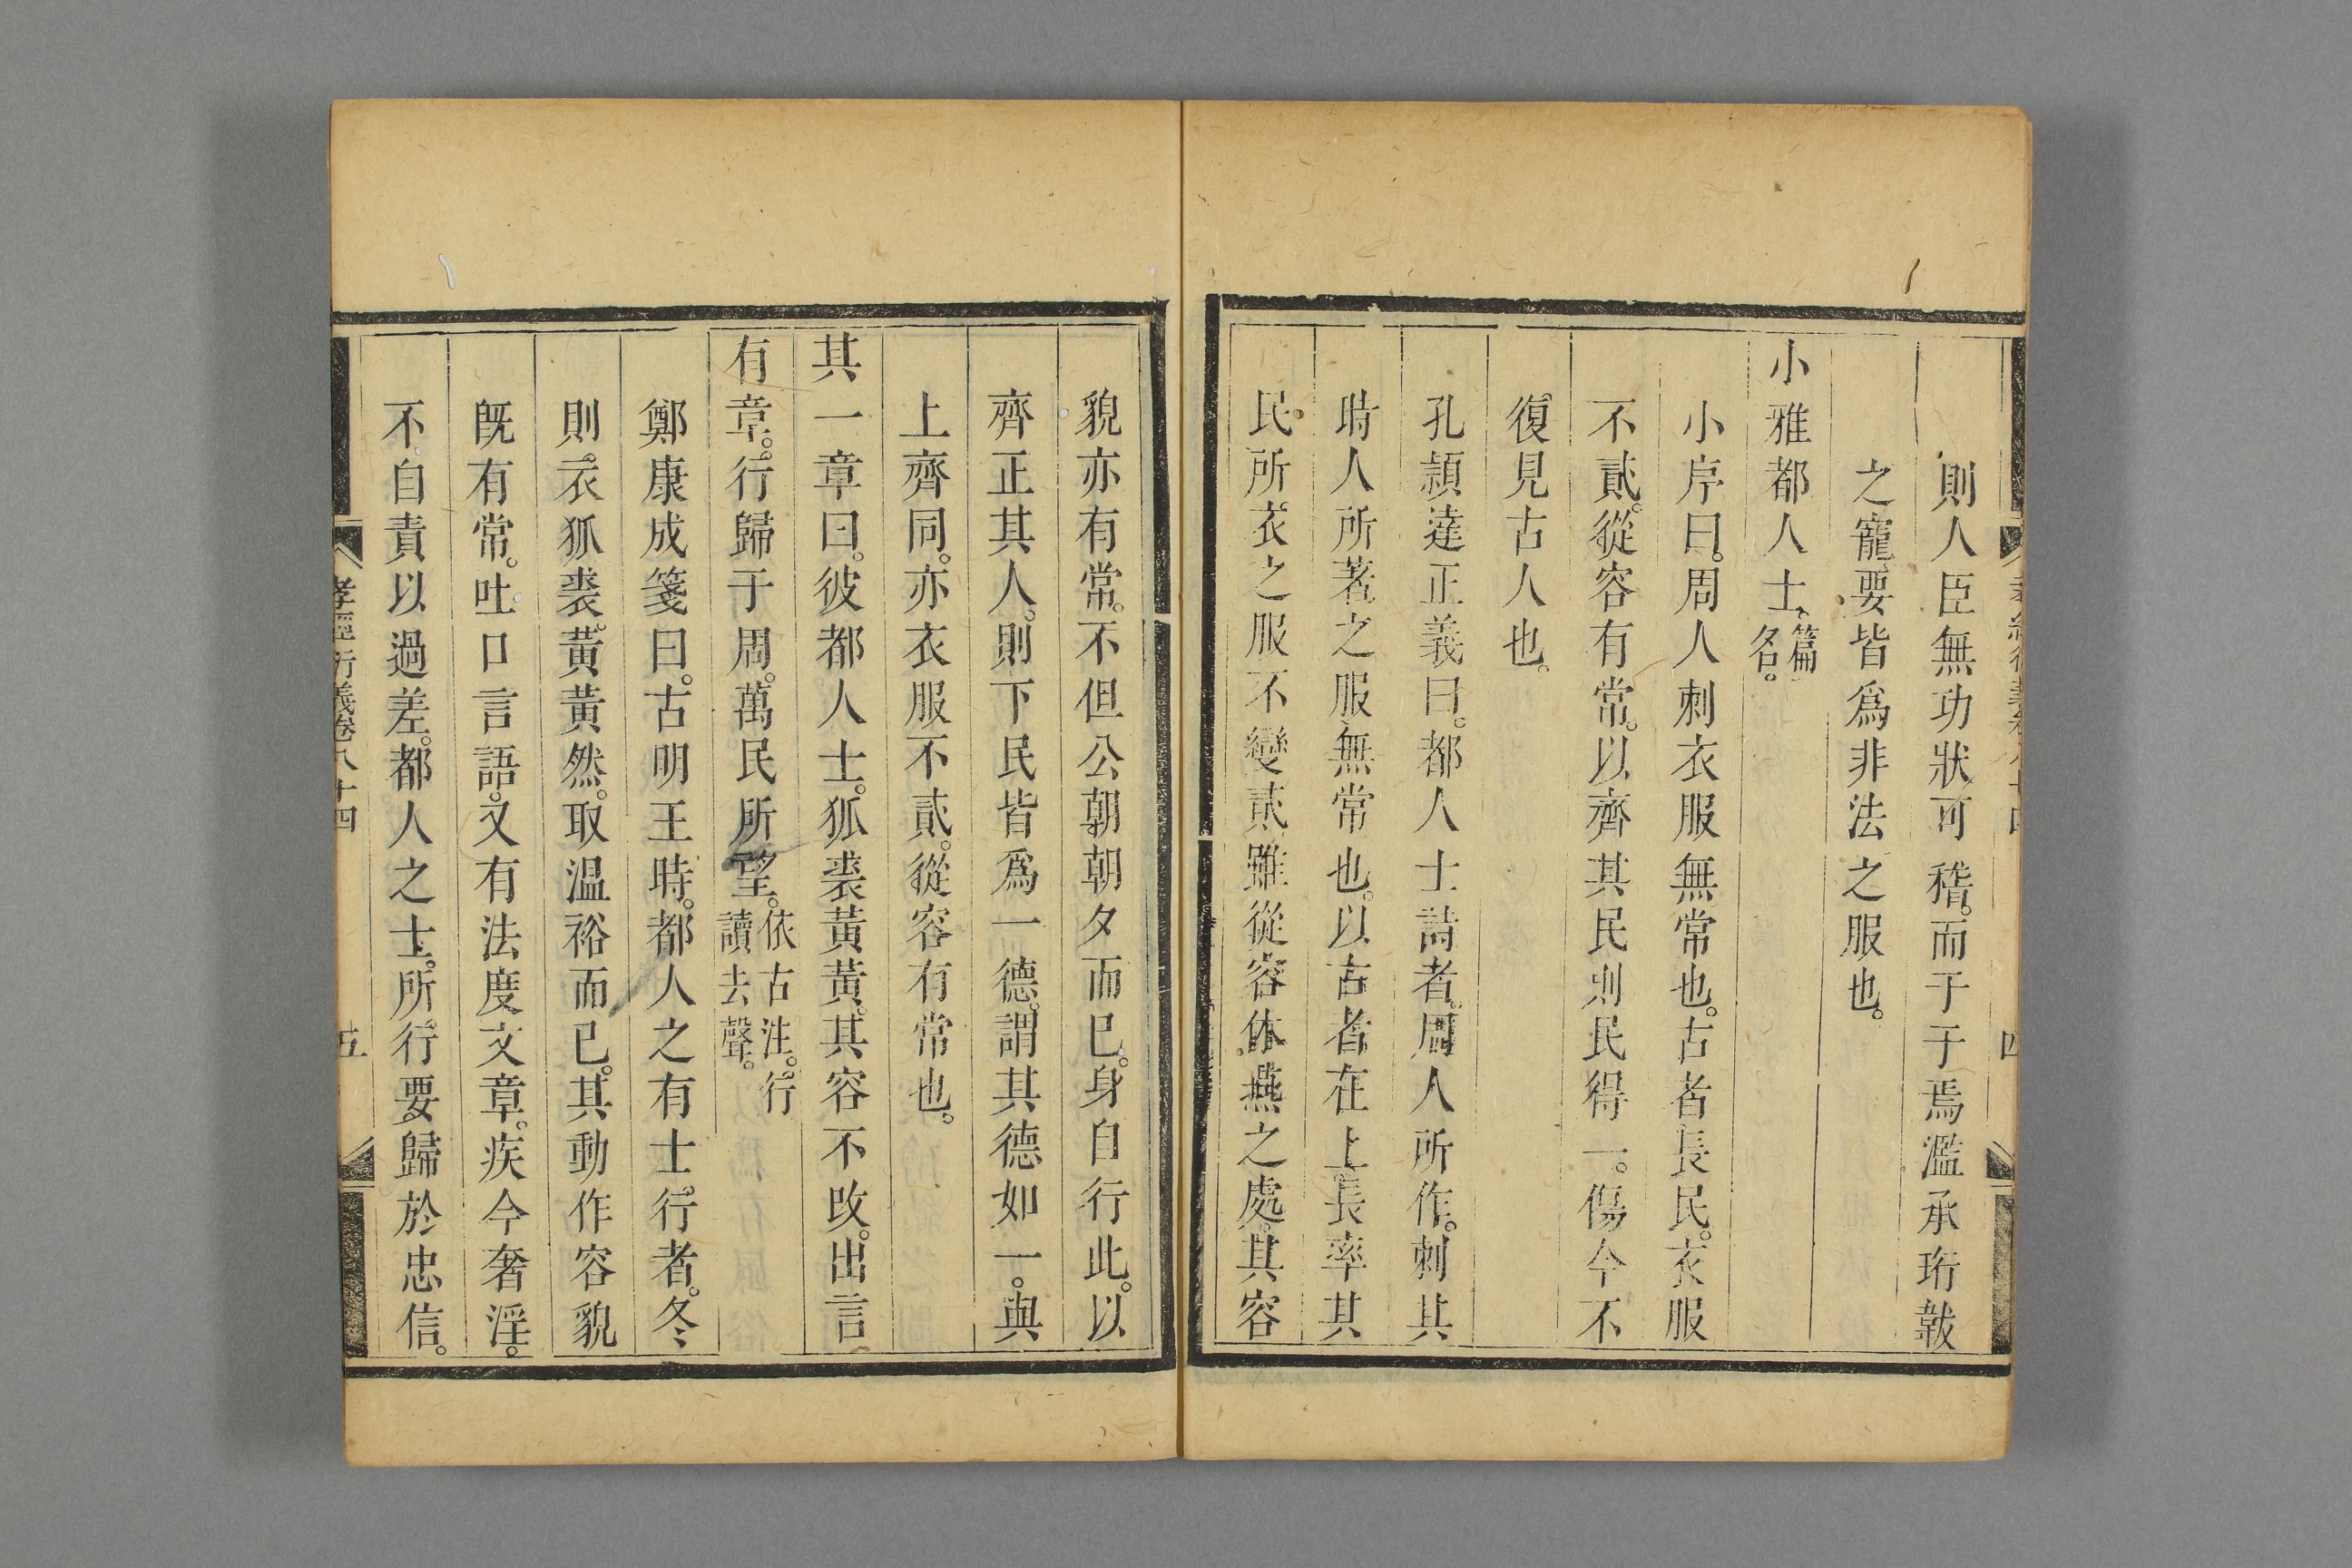 則人臣無功狀可稽。而于于焉濫承珩韍
之寵、要皆爲非法之服也。
小雅都人士、篇名。
小序曰。周人刺衣服無常也。古者長民。衣服
不貳。從容有常。以齊其民。則民得一。傷今不
復見古人也。
孔頴達正義曰。都人士詩者。周人所作。刺其
時人所著之服無常也。以古者在上長率其
民。所衣之服不變貳。雖從容休燕之處。其容
貌亦有常。不但公朝朝夕而已。身自行此。以
齊正其人。則下民皆爲一德。謂其德如一。與
上齊同。亦衣服不貳。從容有常也。
其一章曰。彼都人士。狐裘黃黃。其容不改。出言
有章。行歸于周。萬民所望。依古注。行讀去聲。
鄭康成箋曰。古明王時。都人之有士行者。冬
則衣狐裘。黃黃然。取溫裕而已。其動作容貌
旣有常。吐口言語。又有法度文章。疾今奢淫。
不自責以過差。都人之士。所行要歸於忠信。
孝經衍義卷八十四
五